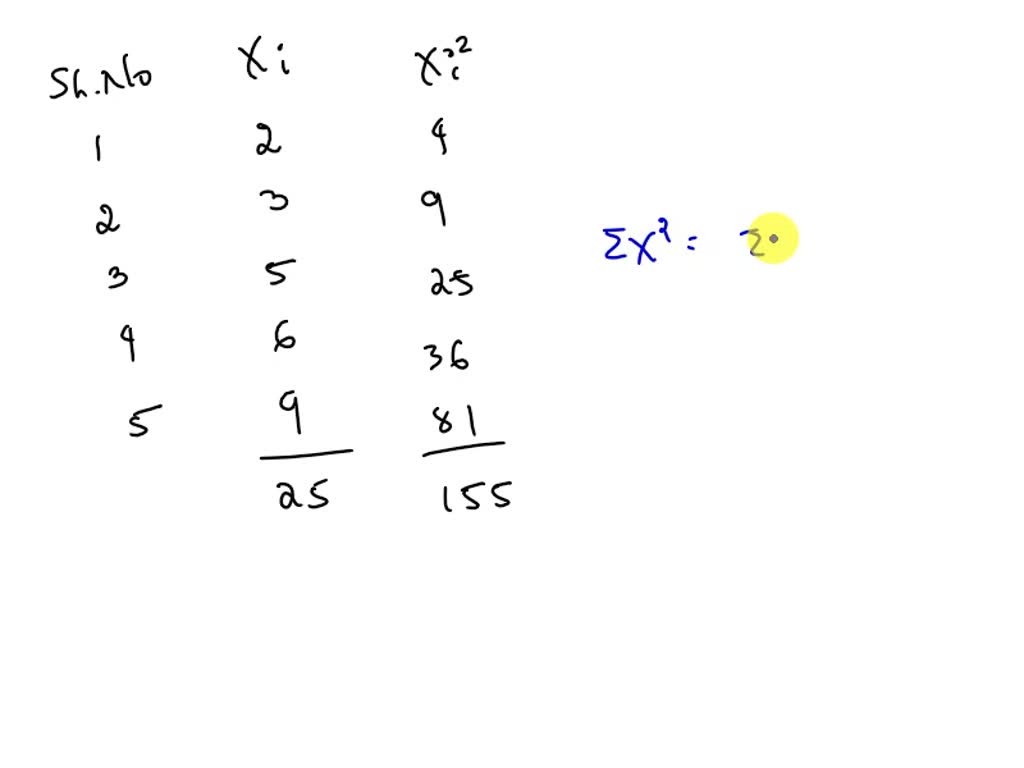 Sl.No Xi Xi²
1 2 4
2 3 9
3 5 25
4 6 36
5 9 81
25 155
Σx² = Σ